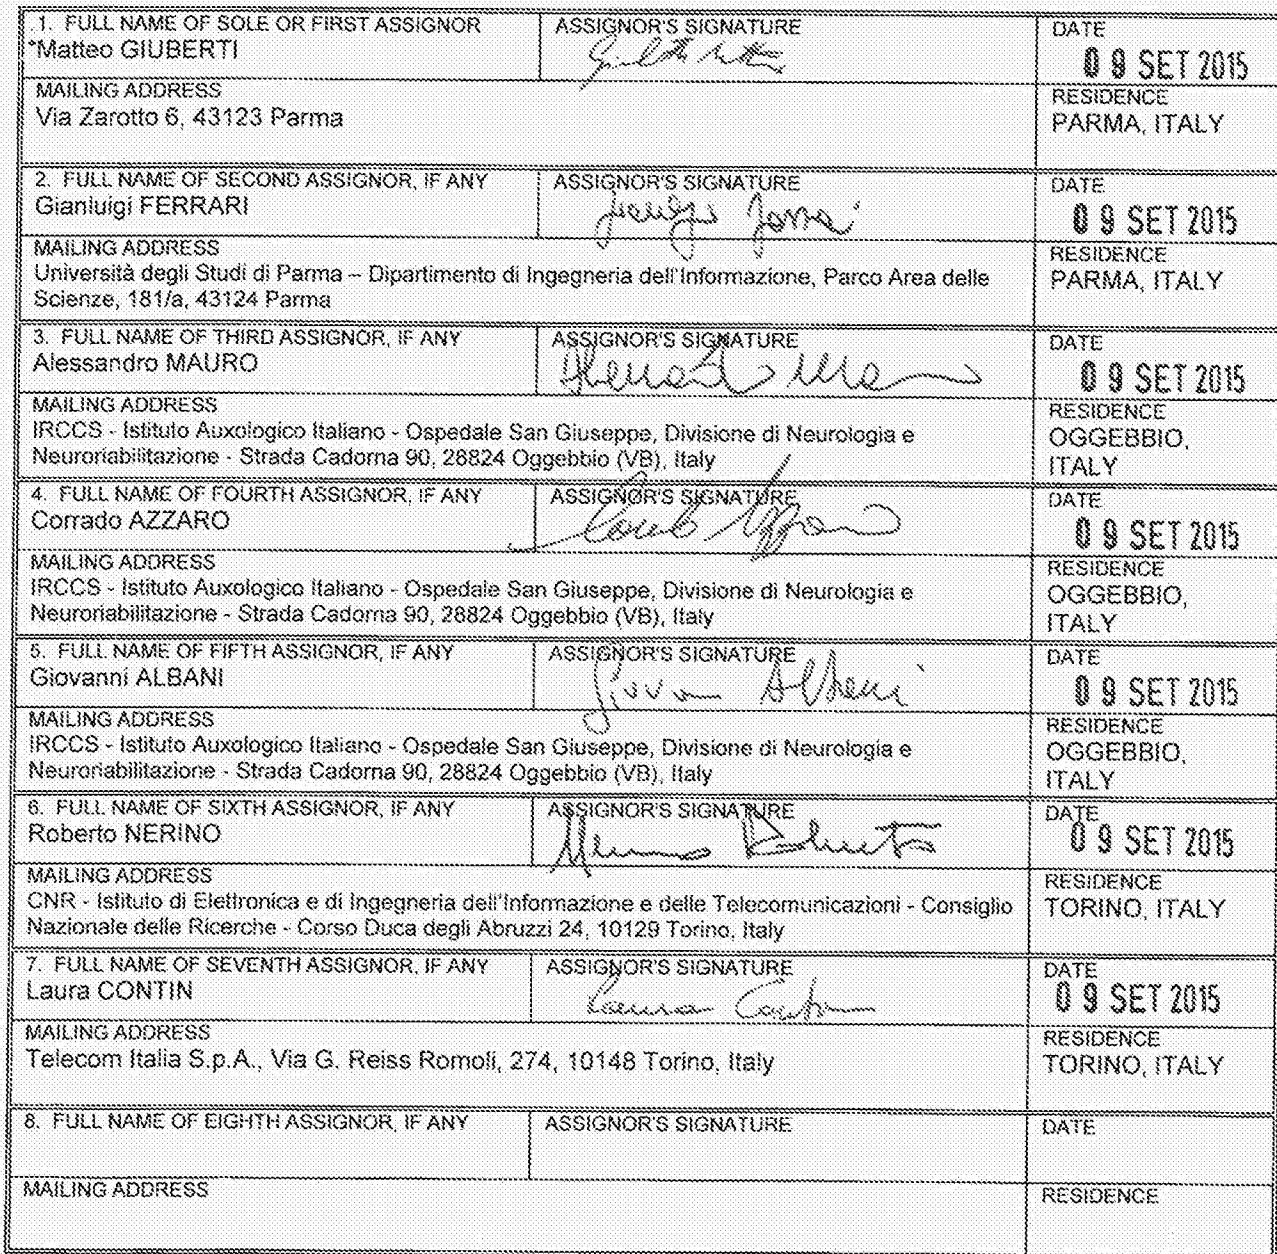 1. FULL NAME OF SOLE OR FIRST ASSIGNOR
*Matteo GIUBERTI
ASSIGNOR'S SIGNATURE
DATE
09 SET 2015
MAILING ADDRESS
Via Zarotto 6, 43123 Parma
RESIDENCE
PARMA, ITALY
2. FULL NAME OF SECOND ASSIGNOR, IF ANY
Gianluigi FERRARI
ASSIGNOR'S SIGNATURE
DATE
09 SET 2015
MAILING ADDRESS
Università degli Studi di Parma – Dipartimento di Ingegneria dell'Informazione, Parco Area delle
Scienze, 181/a, 43124 Parma
RESIDENCE
PARMA, ITALY
3. FULL NAME OF THIRD ASSIGNOR, IF ANY
Alessandro MAURO
ASSIGNOR'S SIGNATURE
DATE
09 SET 2015
MAILING ADDRESS
IRCCS - Istituto Auxologico Italiano - Ospedale San Giuseppe, Divisione di Neurologia e
Neuroriabilitazione - Strada Cadorna 90, 28824 Oggebbio (VB), Italy
RESIDENCE
OGGEBBIO,
ITALY
4. FULL NAME OF FOURTH ASSIGNOR, IF ANY
Corrado AZZARO
ASSIGNOR'S SIGNATURE
DATE
09 SET 2015
MAILING ADDRESS
IRCCS - Istituto Auxologico Italiano - Ospedale San Giuseppe, Divisione di Neurologia e
Neuroriabilitazione - Strada Cadorna 90, 28824 Oggebbio (VB), Italy
RESIDENCE
OGGEBBIO,
ITALY
5. FULL NAME OF FIFTH ASSIGNOR, IF ANY
Giovanni ALBANI
ASSIGNOR'S SIGNATURE
DATE
09 SET 2015
MAILING ADDRESS
IRCCS - Istituto Auxologico Italiano - Ospedale San Giuseppe, Divisione di Neurologia e
Neuroriabilitazione - Strada Cadorna 90, 28824 Oggebbio (VB), Italy
RESIDENCE
OGGEBBIO,
ITALY
6. FULL NAME OF SIXTH ASSIGNOR, IF ANY
Roberto NERINO
ASSIGNOR'S SIGNATURE
DATE
09 SET 2015
MAILING ADDRESS
CNR - Istituto di Elettronica e di Ingegneria dell'Informazione e delle Telecomunicazioni - Consiglio
Nazionale delle Ricerche - Corso Duca degli Abruzzi 24, 10129 Torino, Italy
RESIDENCE
TORINO, ITALY
7. FULL NAME OF SEVENTH ASSIGNOR, IF ANY
Laura CONTIN
ASSIGNOR'S SIGNATURE
Laura Contin
DATE
09 SET 2015
MAILING ADDRESS
Telecom Italia S.p.A., Via G. Reiss Romoli, 274, 10148 Torino, Italy
RESIDENCE
TORINO, ITALY
8. FULL NAME OF EIGHTH ASSIGNOR, IF ANY
ASSIGNOR'S SIGNATURE
DATE
MAILING ADDRESS
RESIDENCE